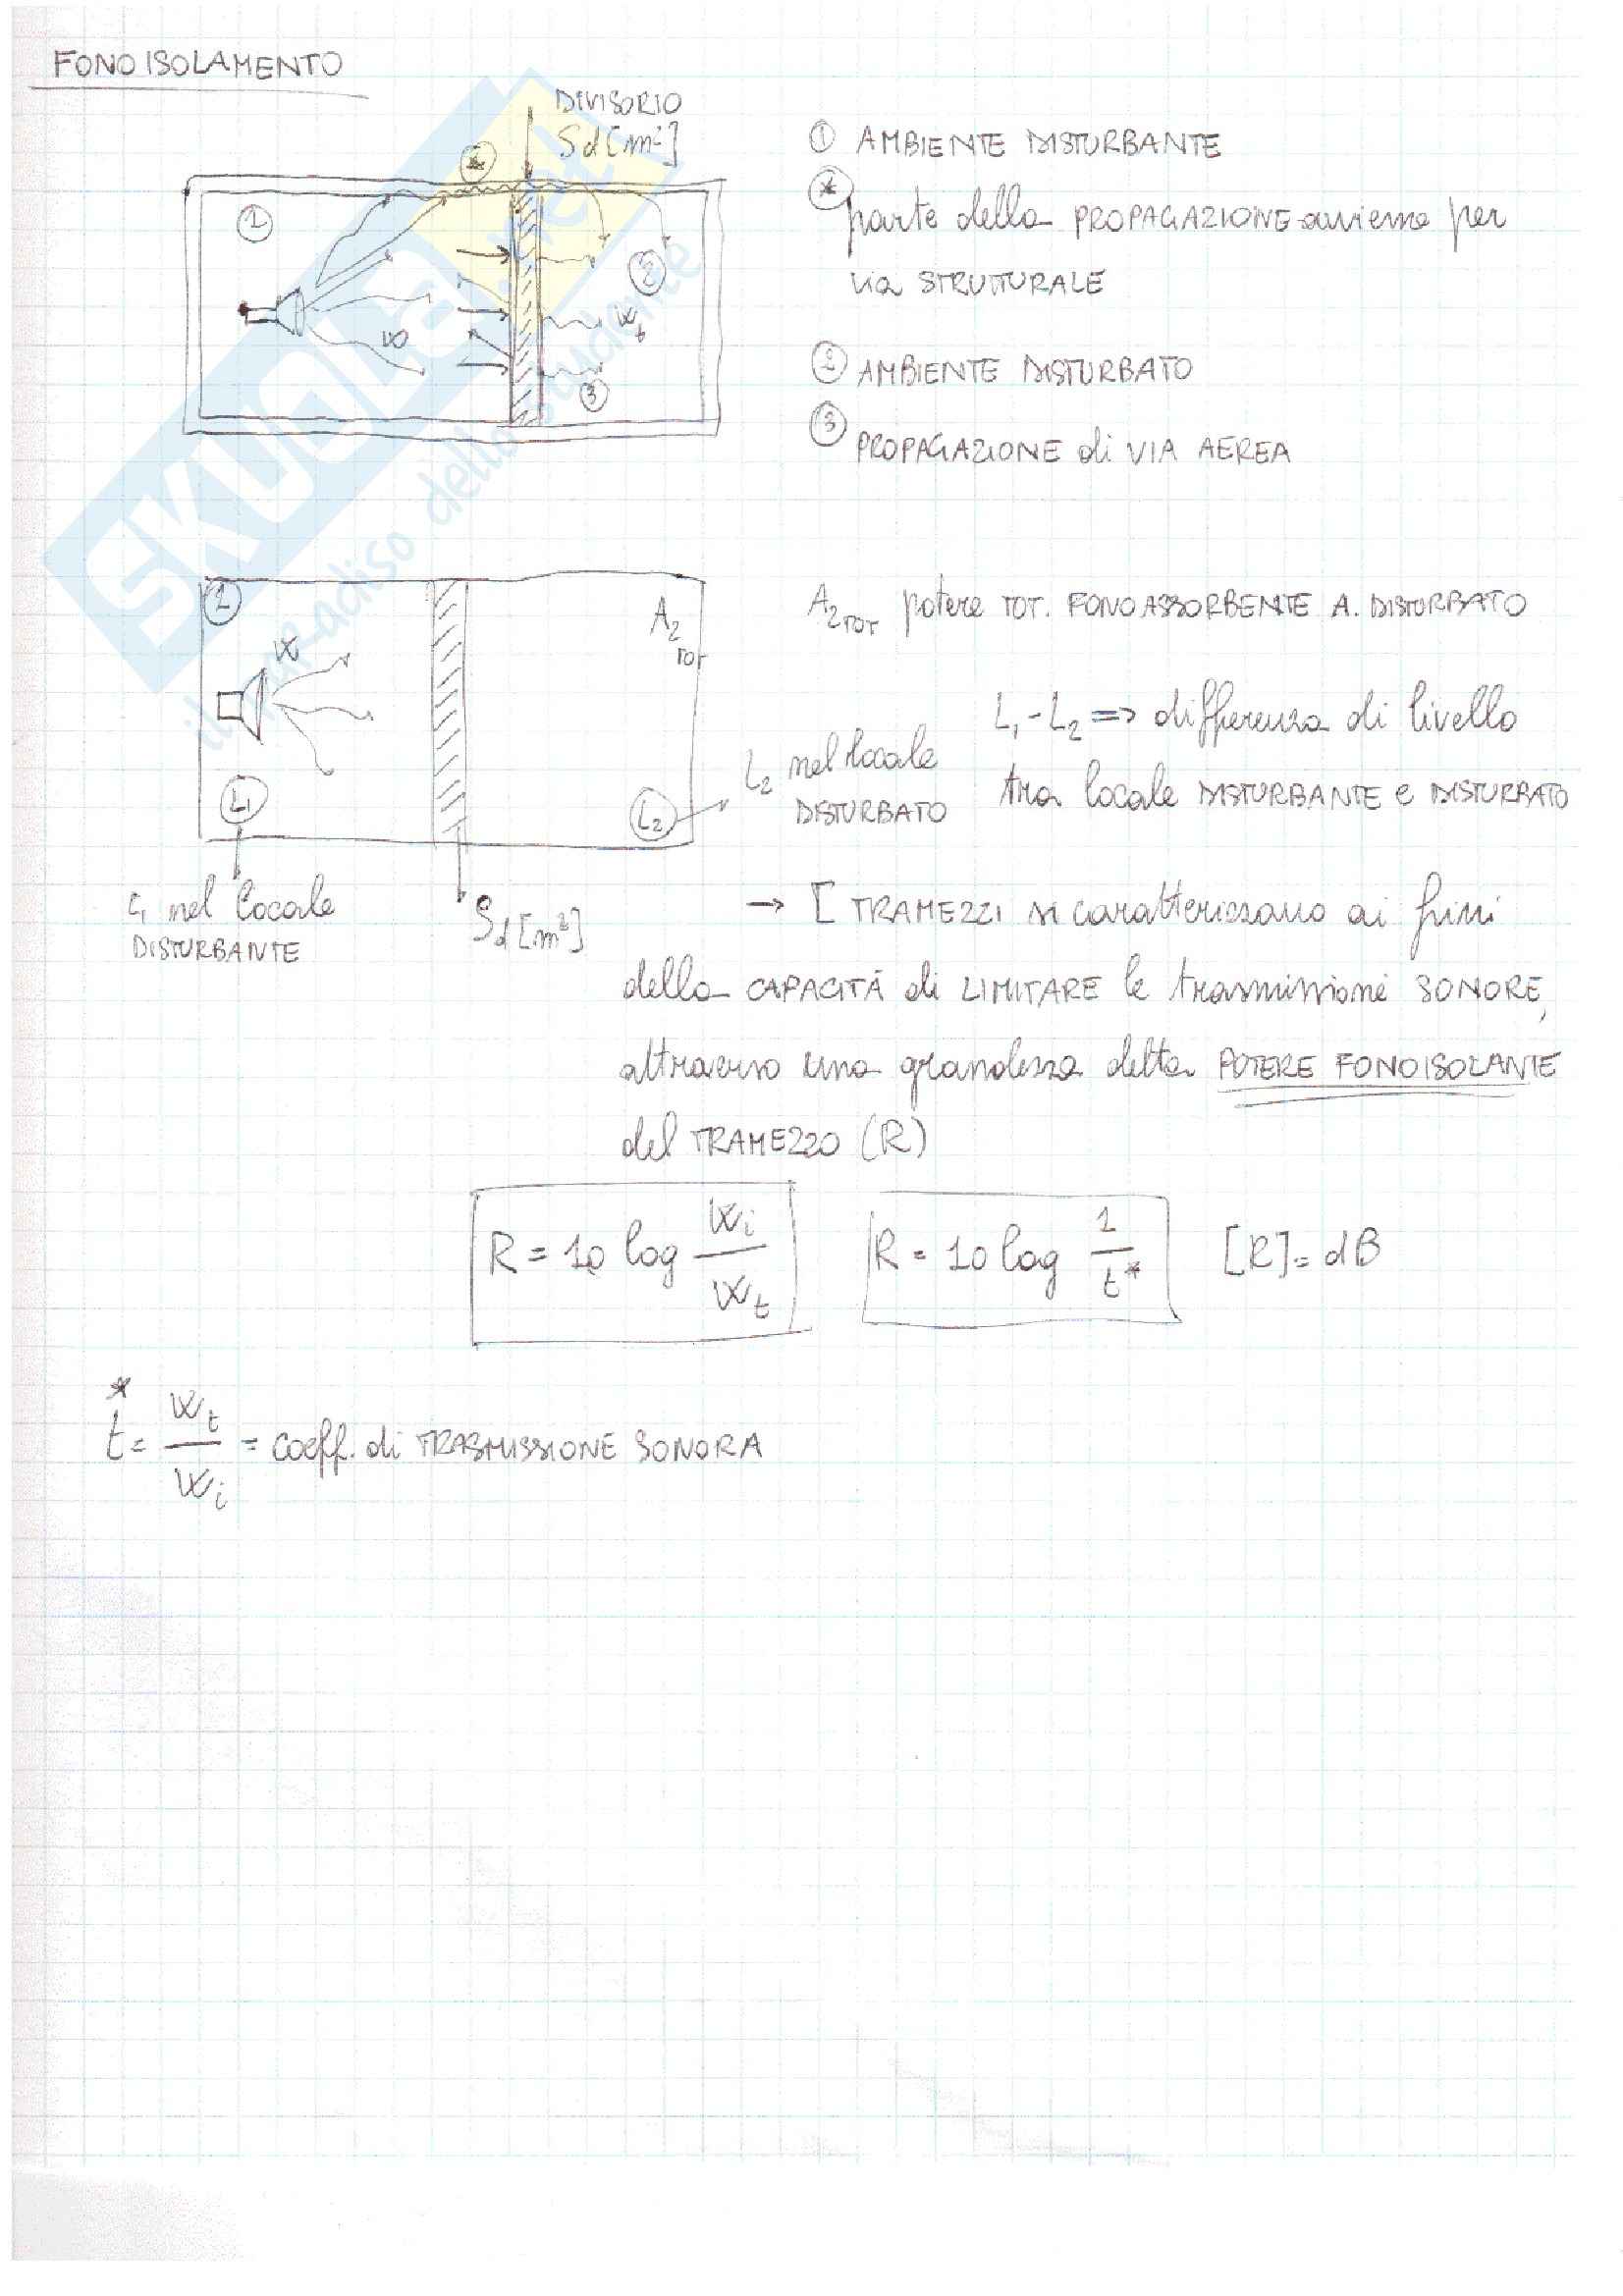 FONOISOLAMENTO
DIVISORIO
Sd [m²]
*
1
2
W
Wt
3
① AMBIENTE DISTURBANTE
* parte della PROPAGAZIONE avviene per
via STRUTTURALE
② AMBIENTE DISTURBATO
③ PROPAGAZIONE di VIA AEREA
SKUOLA.net
il paradiso dello studente
1
W
A₂ TOT
L₁
L₂
L₂ nel locale
DISTURBATO
L₁ nel locale
DISTURBANTE
Sd [m²]
A₂ TOT potere TOT. FONOASSORBENTE A. DISTURBATO
L₁-L₂ => differenza di livello
tra locale DISTURBANTE e DISTURBATO
→ I TRAMEZZI si caratterizzano ai fini
della CAPACITÀ di LIMITARE le trasmissioni SONORE,
attraverso una grandezza detta POTERE FONOISOLANTE
del TRAMEZZO (R)
R = 10 log Wi/Wt   R = 10 log 1/t*   [R] = dB
t* = Wt/Wi = coeff. di TRASMISSIONE SONORA